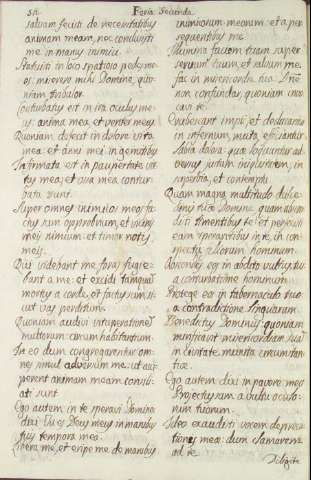 Feria Secunda.
salvam fecisti de necessitatibus
animam meam, nec conclusisti
me in many inimici.
Statuisti in loco spatioso pedes me
os: miserere mihi Domine, quo
niam tribulor.
Conturbatus est in ira oculus me
us: anima mea, et venter meus
Quoniam defecit in dolore vita
mea: et anni mei in gemitibus
Infirmata est in paupertate vir
tus mea; et ossa mea contur
bata sunt.
Super omnes inimicos meos fa
ctus sum opprobrium, et vicinis
meis nimium: et timor notis
meis.
Qui videbant me foras fugie
bant a me: et excidi tanquam
mortuus a corde, et factus sum si
cut vas perditum.
Quoniam audivi vituperationem
multorum circum habitantium.
In eo dum congregarentur om
nes simul adversum me: ut acci
perent animam meam consili
ati sunt.
Ego autem in te speravi Domine
dixi Tu es Deus meus in manibus
tuis tempora mea.
Eripe me, et eripe de manibus
inimicorum meorum et a per
sequentibus me.
Illumina faciem tuam super
servum tuum, et salvum me
fac in misericordia tua: Dne
non confundar, quoniam invo
cavi te.
Erubescant impii, et deducantur
in infernum, muta efficiantur
labia dolosa: quæ loquuntur ad
versus justum iniquitatem, in
superbia, et contemptu
Quam magna multitudo dulce
dinis tuæ Domine quam abscon
disti timentibus te: et perfecisti
eam sperantibus in te, in con
spectu filiorum hominum.
Abscondes eos in abdito vultus tui
a conturbatione hominum
Protege eos in tabernaculo tuo
a contradictione linguarum.
Benedictus Dominus: quoniam
mirificavit misericordiam suam
in civitate munita circumstan
tiæ.
Ego autem dixi in pavore meo
Projectus sum a vultu oculo
rum tuorum.
Ideo exaudisti vocem depræca
tionis meæ: dum clamarem
ad te.
Diligite